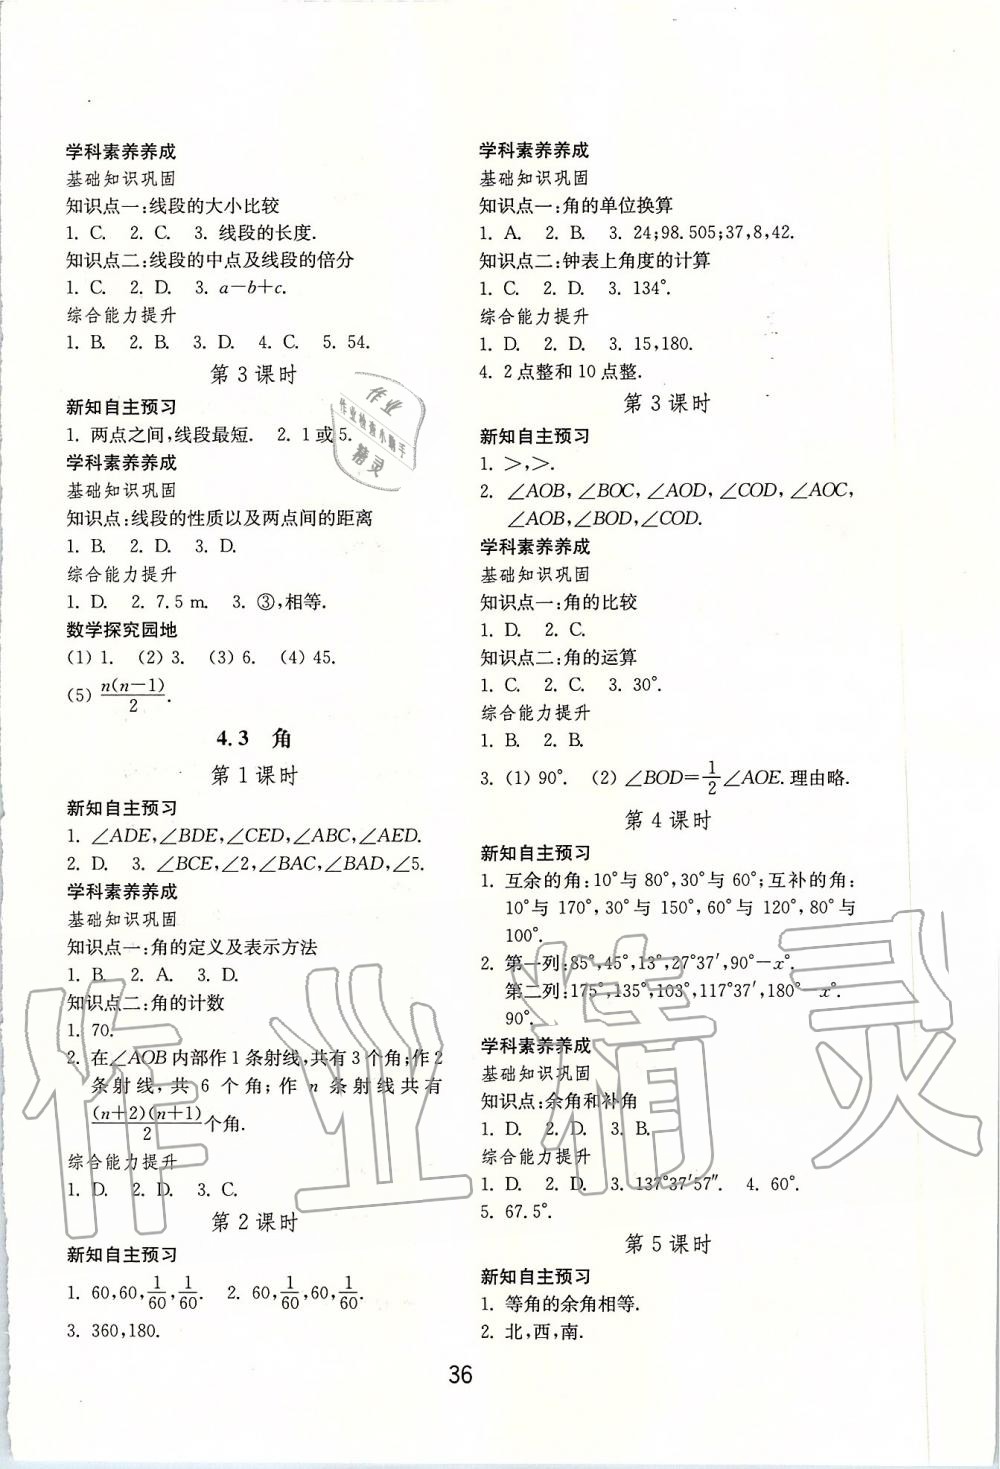 学科素养养成
基础知识巩固
知识点一:线段的大小比较
1. C. 2. C. 3. 线段的长度.
知识点二:线段的中点及线段的倍分
1. C. 2. D. 3. a-b+c.
综合能力提升
1. B. 2. B. 3. D. 4. C. 5. 54.
第 3 课时
新知自主预习
1. 两点之间,线段最短. 2. 1或5.
学科素养养成
基础知识巩固
知识点:线段的性质以及两点间的距离
1. B. 2. D. 3. D.
综合能力提升
1. D. 2. 7.5 m. 3. ③,相等.
数学探究园地
(1) 1. (2) 3. (3) 6. (4) 45.
(5) n(n-1)/2.
4.3 角
第 1 课时
新知自主预习
1. ∠ADE,∠BDE,∠CED,∠ABC,∠AED.
2. D. 3. ∠BCE,∠2,∠BAC,∠BAD,∠5.
学科素养养成
基础知识巩固
知识点一:角的定义及表示方法
1. B. 2. A. 3. D.
知识点二:角的计数
1. 70.
2. 在∠AOB内部作1条射线,共有3个角;作2
条射线,共 6 个角;作 n 条射线共有
(n+2)(n+1)/2个角.
综合能力提升
1. D. 2. D. 3. C.
第 2 课时
新知自主预习
1. 60,60,1/60,1/60. 2. 60,1/60,60,1/60.
3. 360,180.
学科素养养成
基础知识巩固
知识点一:角的单位换算
1. A. 2. B. 3. 24;98.505;37,8,42.
知识点二:钟表上角度的计算
1. C. 2. D. 3. 134°.
综合能力提升
1. D. 2. D. 3. 15,180.
4. 2点整和10点整.
第 3 课时
新知自主预习
1. >,>.
2. ∠AOB,∠BOC,∠AOD,∠COD,∠AOC,
∠AOB,∠BOD,∠COD.
学科素养养成
基础知识巩固
知识点一:角的比较
1. D. 2. C.
知识点二:角的运算
1. C. 2. C. 3. 30°.
综合能力提升
1. B. 2. B.
3. (1) 90°. (2) ∠BOD=1/2∠AOE.理由略.
第 4 课时
新知自主预习
1. 互余的角:10°与 80°,30°与 60°;互补的角:
10°与 170°,30°与 150°,60°与 120°,80°与
100°.
2. 第一列:85°,45°,13°,27°37′,90°-x°.
第二列:175°,135°,103°,117°37′,180° x°.
90°.
学科素养养成
基础知识巩固
知识点:余角和补角
1. D. 2. D. 3. B.
综合能力提升
1. D. 2. D. 3. 137°37′57″. 4. 60°.
5. 67.5°.
第 5 课时
新知自主预习
1. 等角的余角相等.
2. 北,西,南.
36
作业
作业检查小帮手
精灵
作业精灵